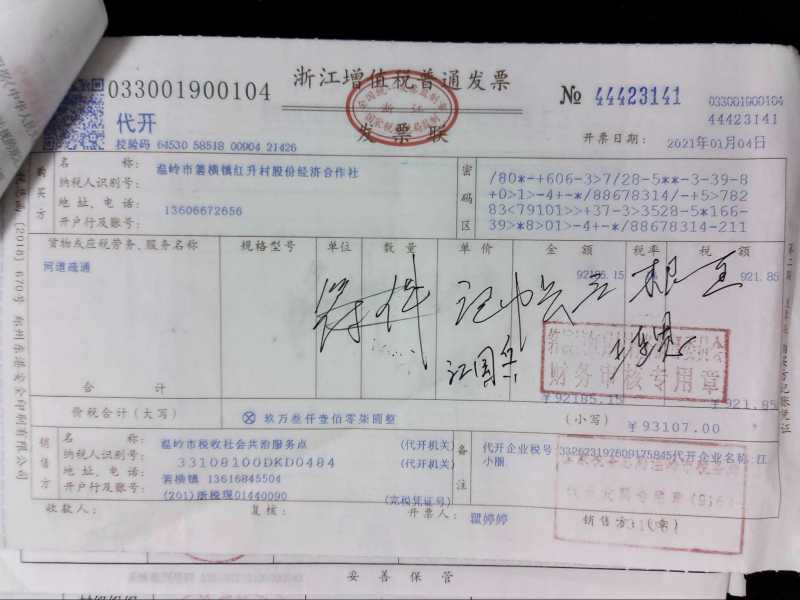 033001900104
浙江增值税普通发票
№ 44423141
033001900104
44423141
代开
发票联
校验码 64530 58518 00904 21426
开票日期: 2021年01月04日
购买方
名称: 温岭市箬横镇红升村股份经济合作社
纳税人识别号:
地址、电话: 13606672656
开户行及账号:
密码区
/80*-+606-3>7/28-5**-3-39-8
+0>1>-4+-*/88678314/-+5>782
83<79101>>+37-3>3528-5*166-
39>*8>01>-4+-*/88678314-211
货物或应税劳务、服务名称 规格型号 单位 数量 单价 金额 税率 税额
河道疏通 92185.15 921.85
江国
财务审核专用章
合计 ¥92185.15 ¥921.85
价税合计(大写) ⊗ 玖万叁仟壹佰零柒圆整 (小写) ¥93107.00
销售方
名称: 温岭市税收社会共治服务点 (代开机关)
纳税人识别号: 33108100DKD0484 (代开机关)
地址、电话: 箬横镇 13616845504
开户行及账号: (201)浙税现01440090 (完税凭证号)
备注
代开企业税号: 332623197609175845代开企业名称:江
小丽
收款人: 复核: 开票人: 瞿婷婷 销售方:(章)
妥善保管